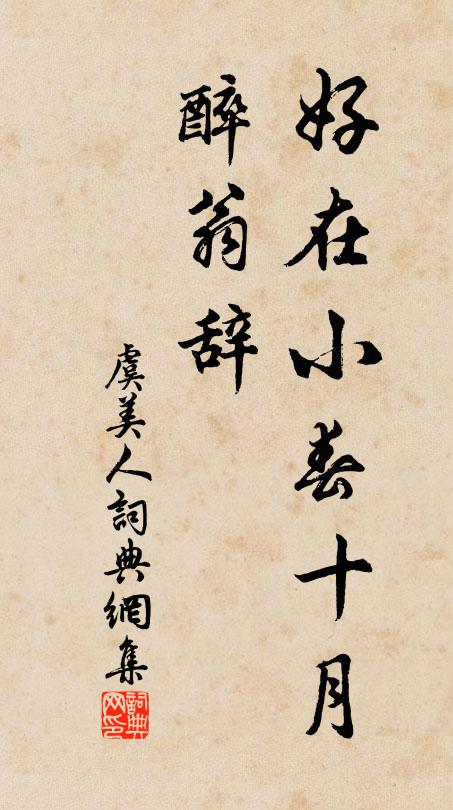 好在小春十月
醉翁辞
虞美人詞典網集
詞典网印